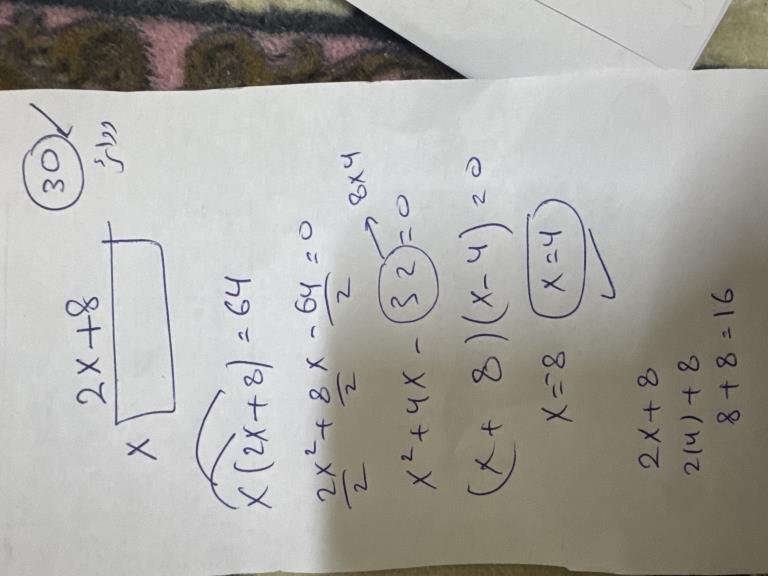 30
2x+8
x
x(2x+8)=64
2x²/2 + 8x/2 - 64/2 = 0
8x4
x² + 4x - 32 = 0
(x + 8)(x-4) = 0
x=-8 x=4
2x+8
2(4)+8
8+8=16